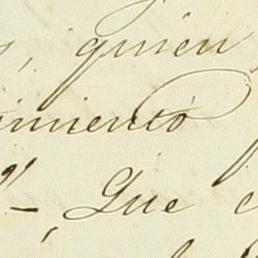 , quien
imiento
– Que c